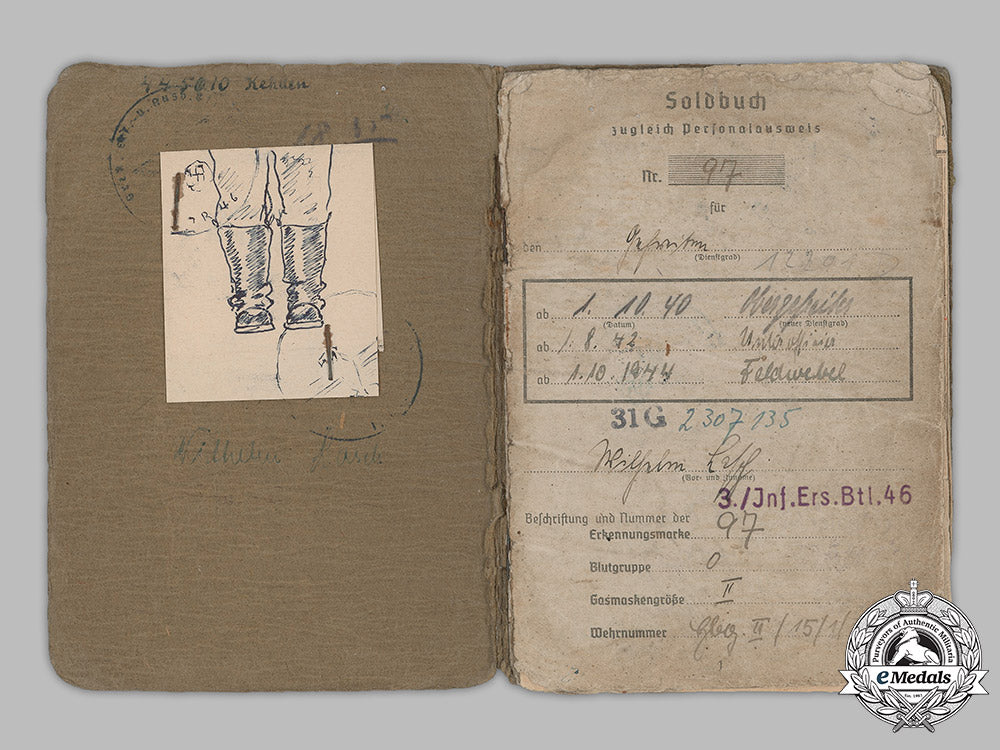 445610 Kehlen
Gren. Ers. u. Ausb.
R 46
Wilhelm
Soldbuch
zugleich Personalausweis
Nr. 97
für
den Gefreiten
(Dienstgrad)
ab 1. 10. 40 Obergefreiter
(Datum) (neuer Dienstgrad)
ab 1. 8. 42 Unteroffizier
ab 1.10.1944 Feldwebel
31G 2307135
Wilhelm
(Vor- und Zuname)
3./Inf.Ers.Btl.46
Beschriftung und Nummer der
Erkennungsmarke 97
Blutgruppe O
Gasmaskengröße II
Wehrnummer II/15/1/
Purveyors of Authentic Militaria
eMedals